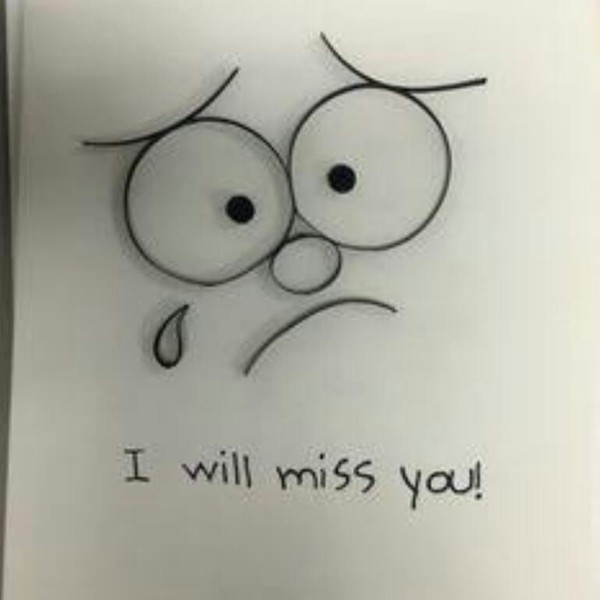 I will miss you!